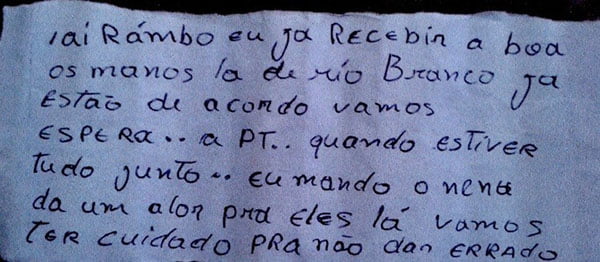 iai Rámbo eu ja RECEBIR a boa
os manos la de rio Branco ja
ESTÃO de acordo vamos
ESPERA.. a PT.. quando ESTIVER
tudo junto.. EU mando o nena
da um alor pra ELES lá vamos
TER cuidado PRA não dar ERRADO